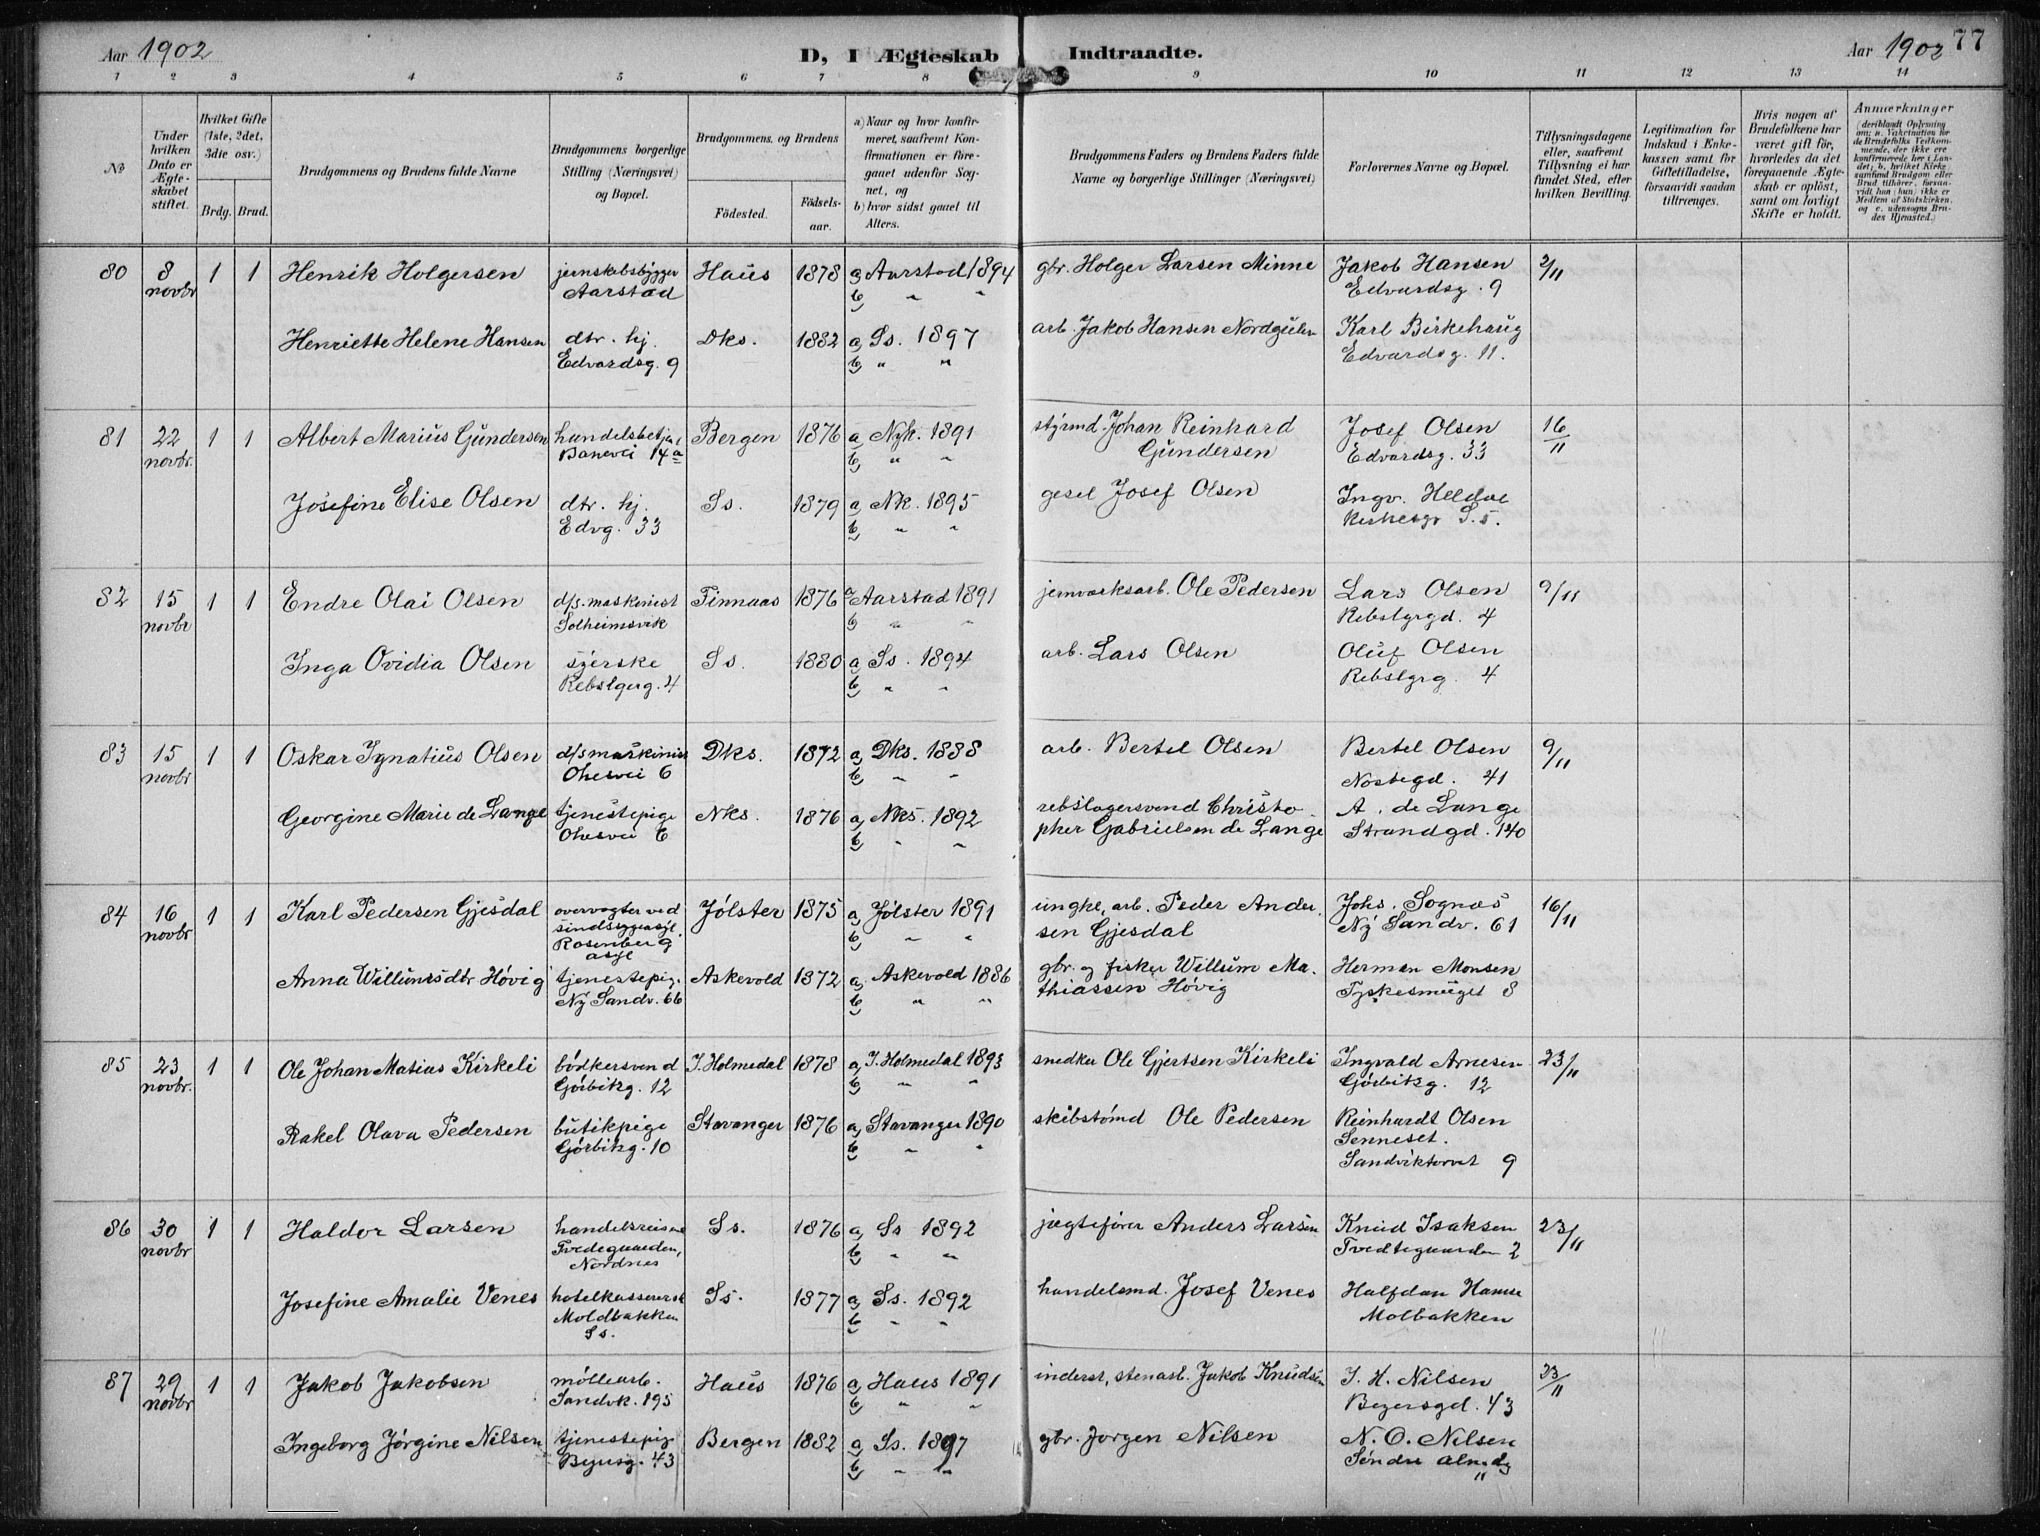 Aar 1902
D, I Ægteskab Indtraadte.
Aar 1902 77
1 2 3 4 5 6 7 8 9 10 11 12 13 14
№
Under hvilken Dato er Ægteskabet stiftet.
Hvilket Gifte (1ste, 2det, 3die osv.)
Brdg. Brud.
Brudgommens og Brudens fulde Navne
Brudgommens borgerlige Stilling (Næringsvei) og Bopæl.
Brudgommens og Brudens
Födested.
Födselsaar.
a) Naar og hvor konfirmeret, saafremt Konfirmationen er foregaaet udenfor Sognet, og
b) hvor sidst gaaet til Alters.
Brudgommens Faders og Brudens Faders fulde Navne og borgerlige Stillinger (Næringsvei)
Forlovernes Navne og Bopæl.
Tillysningsdagene eller, saafremt Tillysning ei har fundet Sted, efter hvilken Bevilling.
Legitimation for Indskud i Enkekassen samt for Giftetilladelse, forsaavidt saadan tiltrænges.
Hvis nogen af Brudefolkene har været gift för, hvorledes da det foregaaende Ægteskab er oplöst, samt om lovligt Skifte er holdt.
Anmærkninger
(deriblandt Oplysning om: a. Vakcination for de Brudefolks Vedkommende, der ikke ere konfirmerede her i Landet; b. hvilket Kirkesamfund Brudgom eller Brud tilhörer, forsaavidt han (hun) ikke er Medlem af Statskirken, og c. udensogns Brudes Hjemsted.)
80 8 novbr 1 1 Henrik Holgersen jernskibsbygger Aarstad Haus 1878 a, Aarstad 1894 b, " " gbr. Holger Larsen Minne Jakob Hansen Edvardsg. 9 2/11
Henriette Helene Hansen dtr. hj. Edvardsg. 9 Dks. 1882 a, Ss. 1897 b, " " arb. Jakob Hansen Nordgulen Karl Birkehaug Edvardsg. 11.
81 22 novbr. 1 1 Albert Marius Gundersen handelsbetjen Banevei 14a Bergen 1876 a, Nyk. 1891 b, " " styrmd. Johan Reinhard Gundersen Josef Olsen Edvardsg. 33 16/11
Josefine Elise Olsen dtr. hj. Edvg. 33 Ss. 1879 a, Nk. 1895 b, " " gesel Josef Olsen Ingv. Heldal S. 5.
82 15 novbr 1 1 Endre Olai Olsen d/s. maskinist Solheimsvik Finnaas 1876 a, Aarstad 1891 b, " " jernværksarb. Ole Pedersen Lars Olsen Rebslgrgd. 4 9/11
Inga Ovidia Olsen syerske Rebslgerg. 4 Ss. 1880 a, Ss. 1894 b, " " arb. Lars Olsen Oluf Olsen Rebslgrg. 4
83 15 novbr 1 1 Oskar Ignatius Olsen d/s maskinist Ohesvei 6 Dks. 1872 a, Dks. 1888 b, " " arb. Bertel Olsen Bertel Olsen Nostegd. 41 9/11
Georgine Marie de Lange tjenestepige Ohesvei 6 Nks. 1876 a, Nks. 1892 b, " " rebslagersvend Christopher Gabrielsen de Lange A. de Lange Strandgd. 140
84 16 novbr. 1 1 Karl Pedersen Gjesdal overvogter ved sindssygeasyl. Rosenberg asyl Jølster 1875 a, Jølster 1891 b, " " ungke, arb. Peder Andersen Gjesdal Johs. Sognæs Ny Sandv. 61 16/11
Anna Willumsdtr Høvig tjenestepig. Ny Sandv. 66 Askevold 1872 a, Askevold 1886 b, " " gbr. og fisker Willum Mathiassen Høvig Herman Monsen Tyskesmuget 8
85 23 novbr. 1 1 Ole Johan Matias Kirkeli bødkersvend Gørbikg. 12 I. Holmedal 1878 a, I. Holmedal 1893 b, " " snedker Ole Gjertsen Kirkeli Ingvald Arnesen Gørbitkg. 12 23/11
Rakel Olava Pedersen butikpige Gørbikg. 10 Stavanger 1876 a, Stavanger 1890 b, " " skibstømd Ole Pedersen Reinhardt Olsen Senneset. Sandviktorvet 9
86 30 novbr 1 1 Haldor Larsen handelsreisend Tvedegaarden, Nordnes Ss. 1876 a, Ss 1892 b, " " jægtefører Anders Larsen Knud Isaksen Tvedtegaarden 2 23/11
Josefine Amalie Venes hotelkassererske Moldbakken Ss. Ss. 1877 a, Ss. 1892 b, " " handelsmd. Josef Venes Halfdan Molbakken
87 29 novbr 1 1 Jakob Jakobsen møllearb. Sandvk. 195 Haus 1876 a, Haus 1891 b, " " inderst, stenarb. Jakob Knudsen I. H. Nilsen Beyersgd. 43 23/11
Ingeborg Jørgine Nilsen tjenestepig Byersg. 43 Bergen 1882 a, Ss. 1897 b, " " gbr. Jørgen Nilsen N. O. Nilsen Søndre